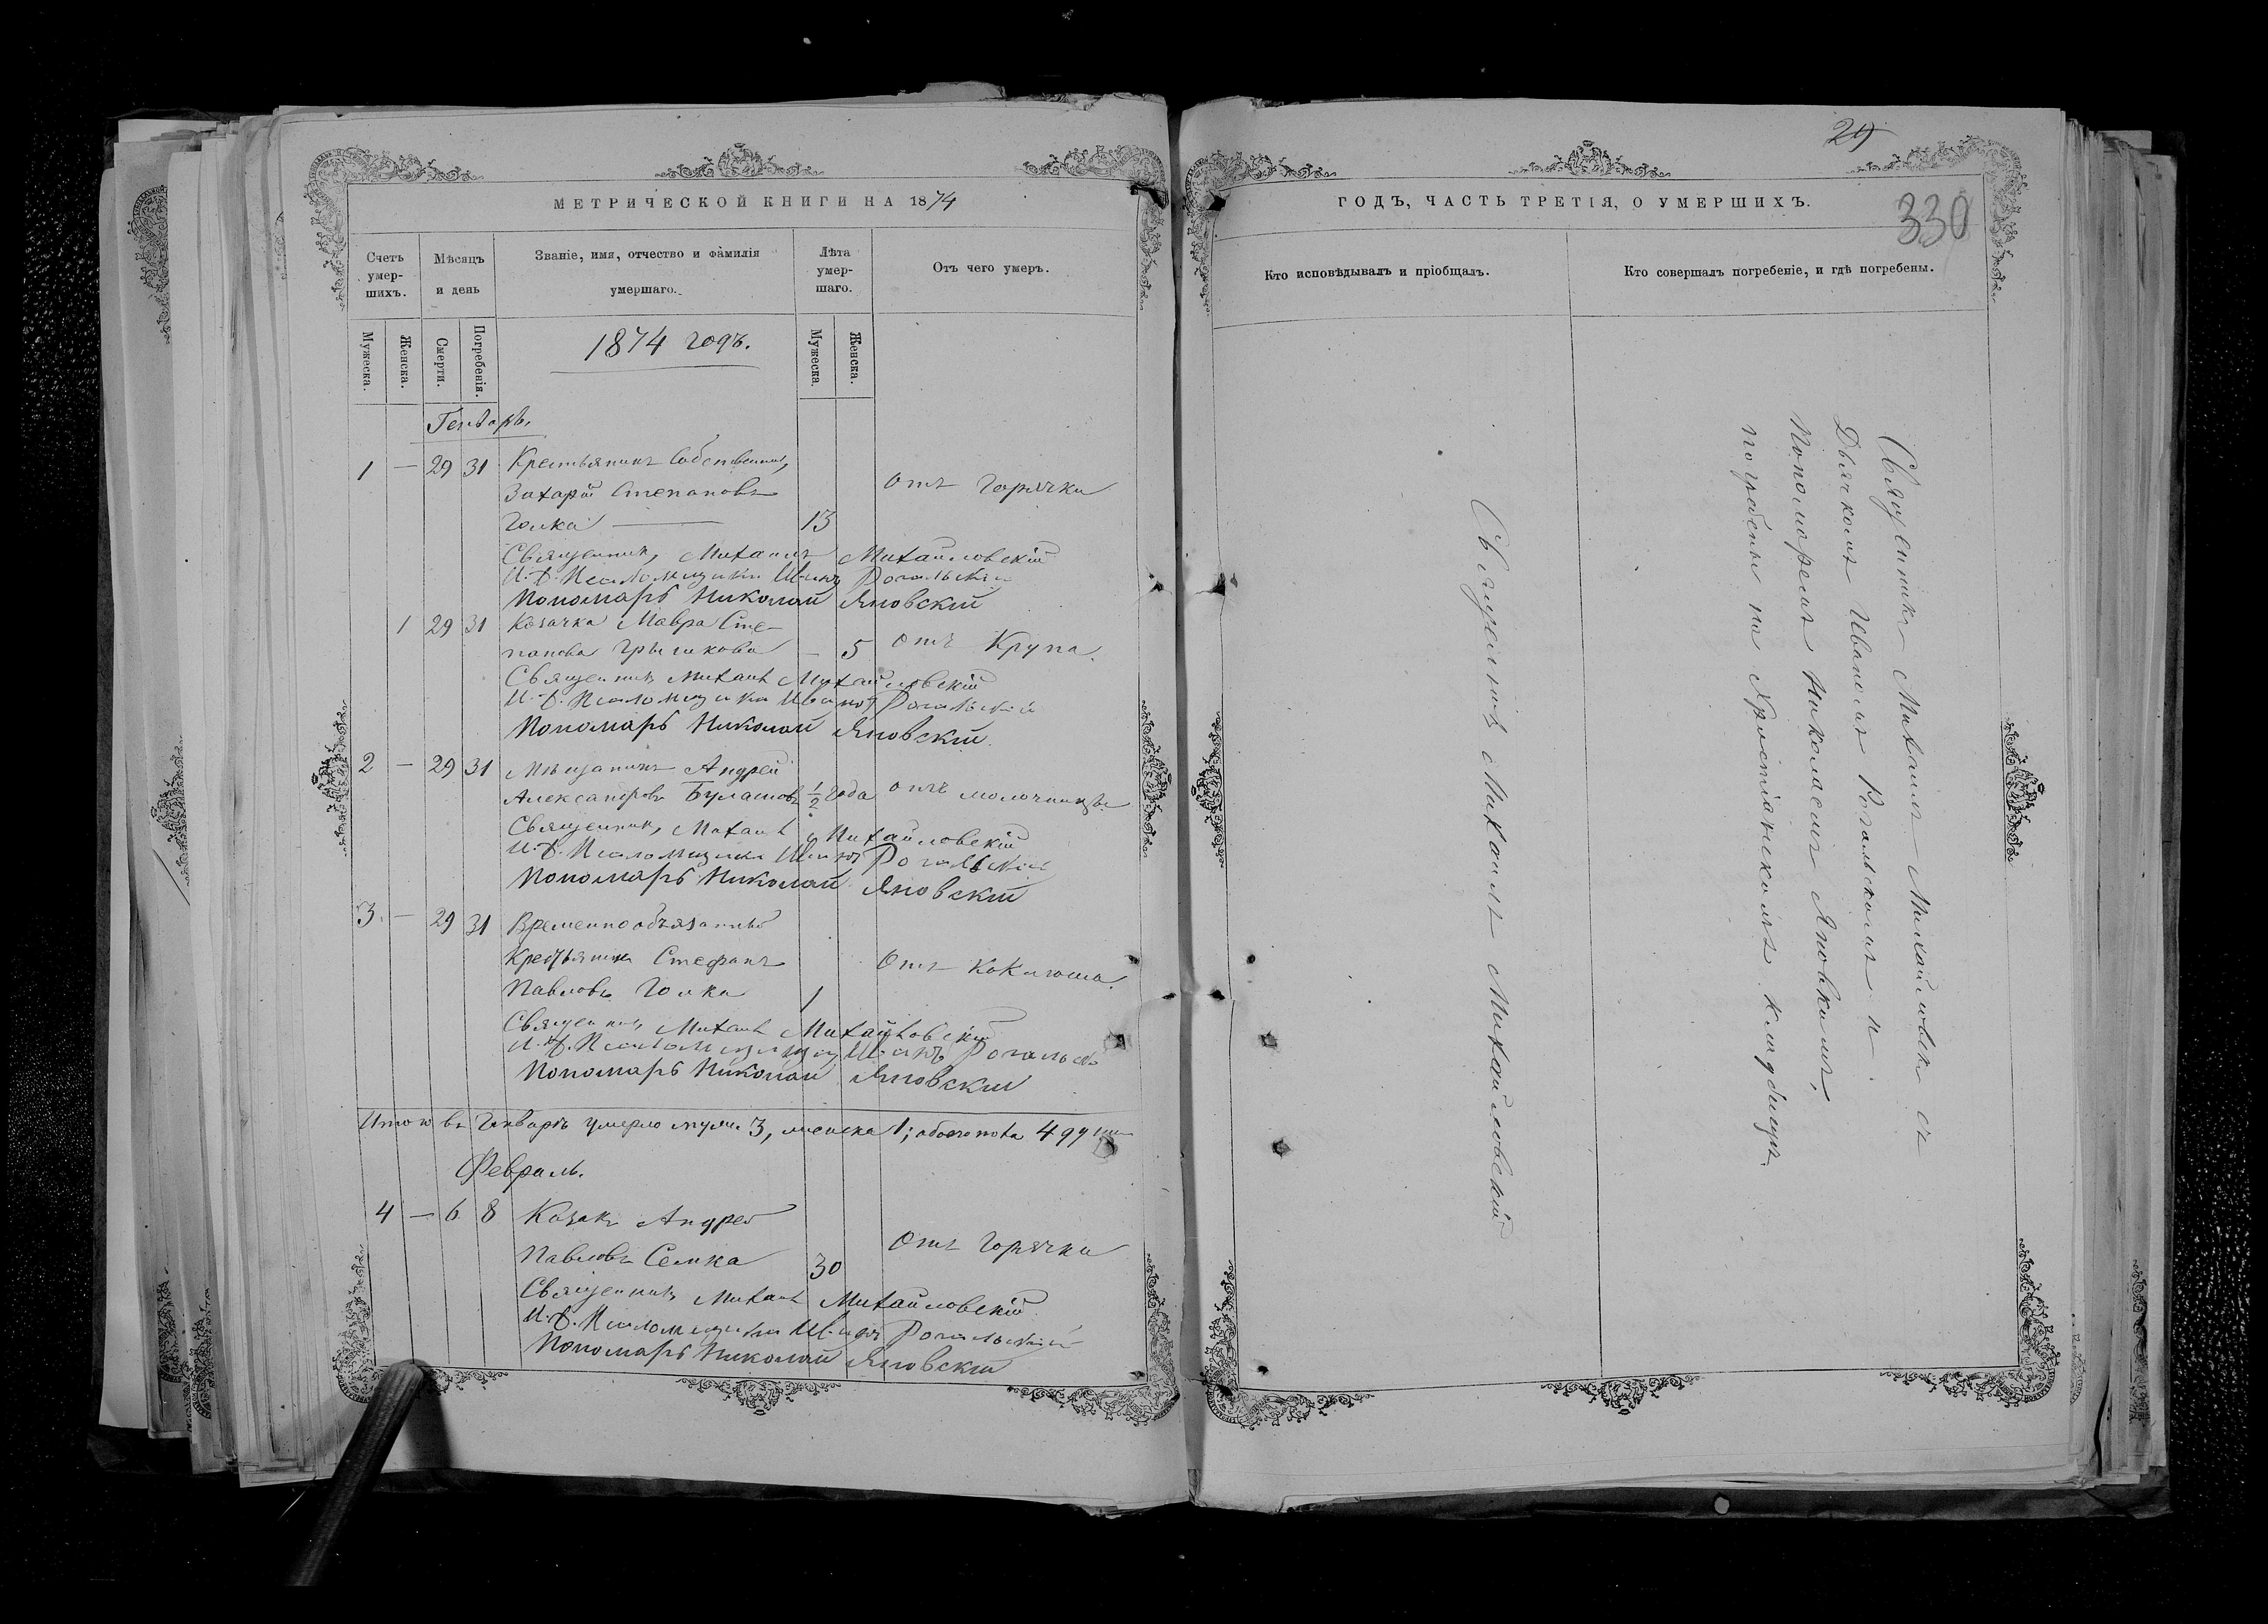 МЕТРИЧЕСКОЙ КНИГИ НА 1874
Счетъ умер-шихъ.
Мѣсяцъ и день
Званіе, имя, отчество и фамилія умершаго.
Лѣта умер-шаго.
Отъ чего умеръ.
Мужеска.
Женска.
Смерти.
Погребенія.
1874 годъ.
Мужеска.
Женска.
Генварь.
1 — 29 31 Крестьянинъ Собственникъ,
Захарій Степановъ отъ горячки
Голка 13
Священникъ Михаилъ Михайловскій
И. д. Псаломщика Иванъ Рогальскій
Пономарь Николай Яновскій
1 29 31 Козачка Мавра Сте-
панова — 5 отъ Крупа.
Священникъ Михаилъ Михайловскій
И. д. Псаломщика Иванъ Рогальскій
Пономарь Николай Яновскій
2 — 29 31 Мѣщанинъ Андрей
Александровъ ½ года отъ молочницы
Священникъ Михаилъ Михайловскій
И. д. Псаломщика Иванъ Рогальскій
Пономарь Николай Яновскій
3. — 29 31 Временнообязанный
Крестьянинъ Стефанъ отъ Коклюша.
Павловъ Голка 1
Священникъ Михаилъ Михайловскій
И. д. Псаломщика Иванъ Рогальскій
Пономарь Николай Яновскій
Итого въ Генварѣ умерло муж. 3, женска 1; обоего пола 4
Февраль.
4 — 6 8 Козакъ Андрей
Павловъ Семка 30 отъ горячки
Священникъ Михаилъ Михайловскій
И. д. Псаломщика Иванъ Рогальскій
Пономарь Николай Яновскій
29
ГОДЪ, ЧАСТЬ ТРЕТІЯ, О УМЕРШИХЪ.
330
Кто исповѣдывалъ и пріобщалъ.
Кто совершалъ погребеніе, и гдѣ погребены.
Священникъ Михаилъ Михайловскій
Священникъ Михаилъ Михайловскій съ
Дьячкомъ Иваномъ Рогальскимъ и
Пономаремъ Николаемъ Яновскимъ,
погребены на Христіанскомъ кладбищѣ.